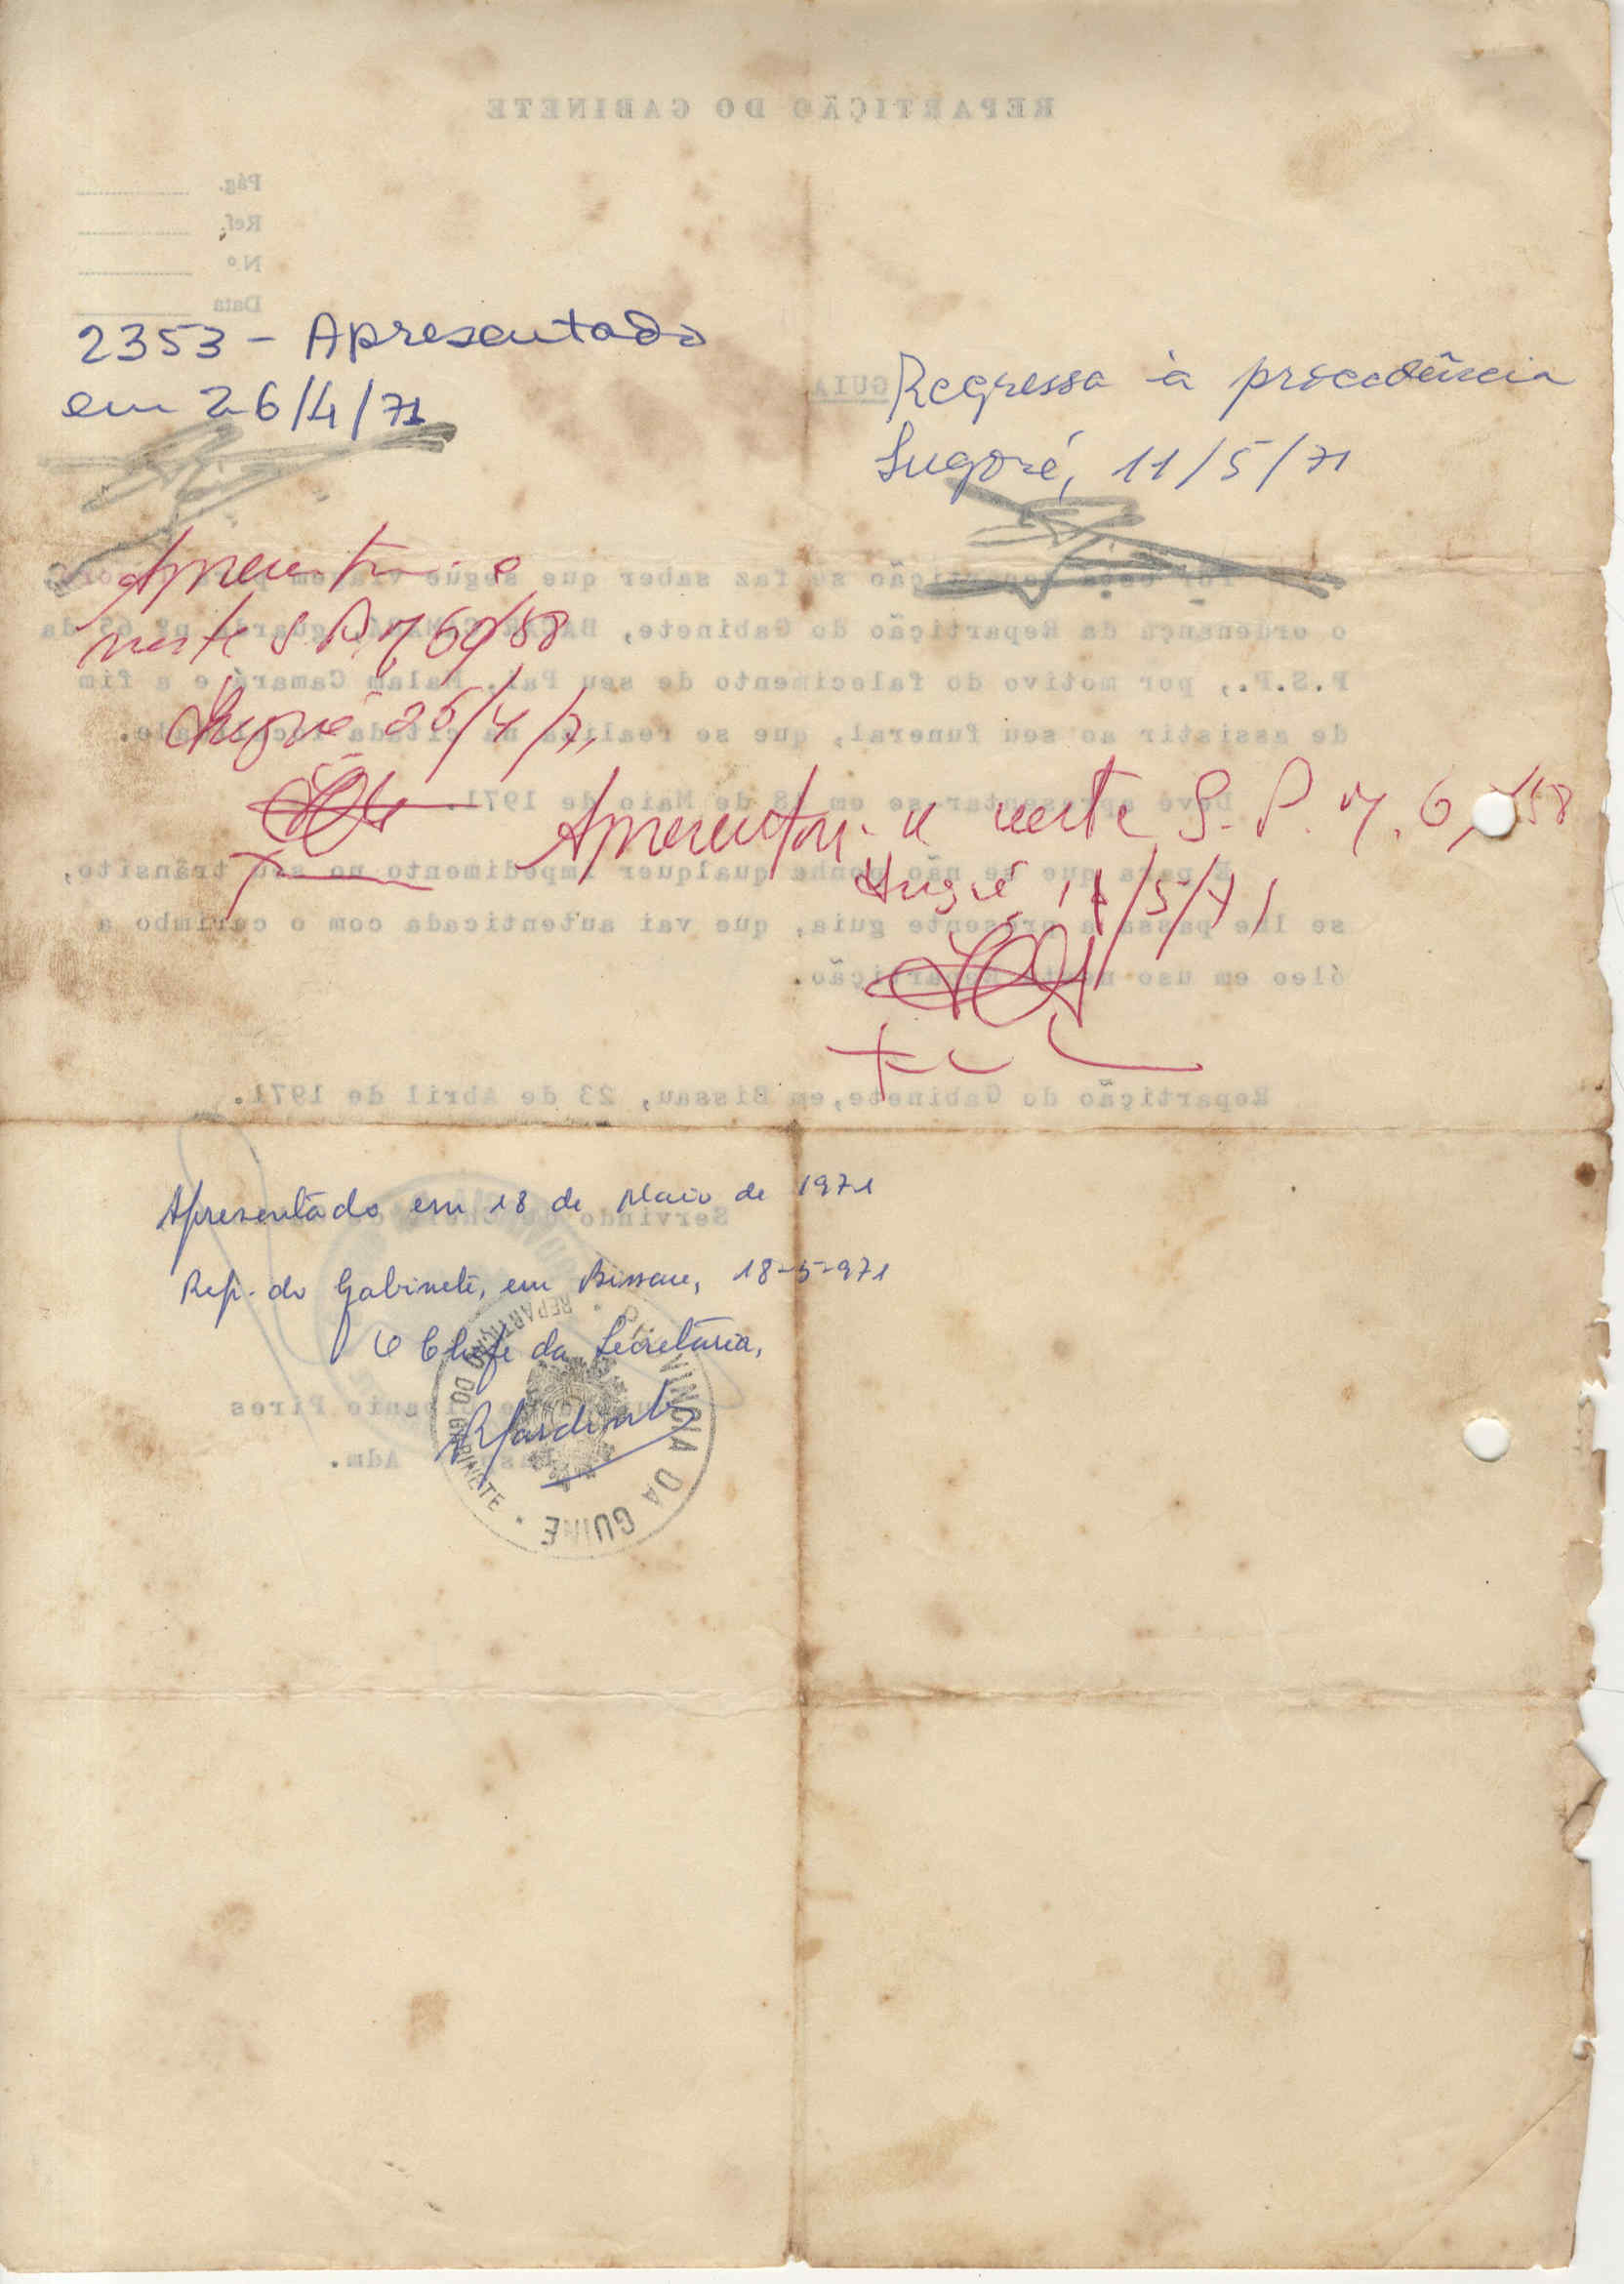 REPARTIÇÃO DO GABINETE
Pág.
Ref.
N.º
Data
2353 - Apresentado
em 26/4/71
GUIA
Regressa à procedência
Ingoré, 11/5/71
se faz saber que segue
o ordenança da Repartição do Gabinete, guarda nº da
P.S.P., por motivo do falecimento de seu Pai, Malam Camará e a fim
de assistir ao seu funeral, que se realiza na citada
neste S.P.M. 6958
Ingoré 26/4/71
Deve apresentar-se em 18 de Maio de 1971.
Apresentou-se neste S.P.M. 6 58
Ingoré 11/5/71
E para que se não ponha qualquer impedimento no seu trânsito,
se lhe passa a presente guia, que vai autenticada com o carimbo a
óleo em uso nesta Repartição.
Repartição do Gabinete, em Bissau, 23 de Abril de 1971.
Apresentado em 18 de Maio de 1971
Servindo de
Rep. do Gabinete, em Bissau, 18-5-971
O Chefe da Secretaria,
VINCIA DA GUINÉ
REPARTIÇÃO DO GABINETE
Pires
Adm.